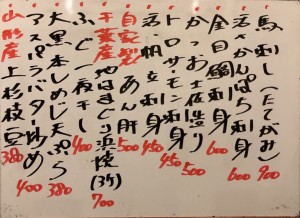 馬刺し(たてがみ) 900
活さざえ刺身 600
金目鯛刺身 600
かつお土佐造り 500
トロサーモン刺身 450
活・帆立刺身 450
自家製 あん肝 500
千葉産 地はまぐり浜焼(3ケ) 700
ふぐ一夜干し 400
大黒本しめじ天ぷら 380
アスパラバター炒め 400
山形産 上杉枝豆 380